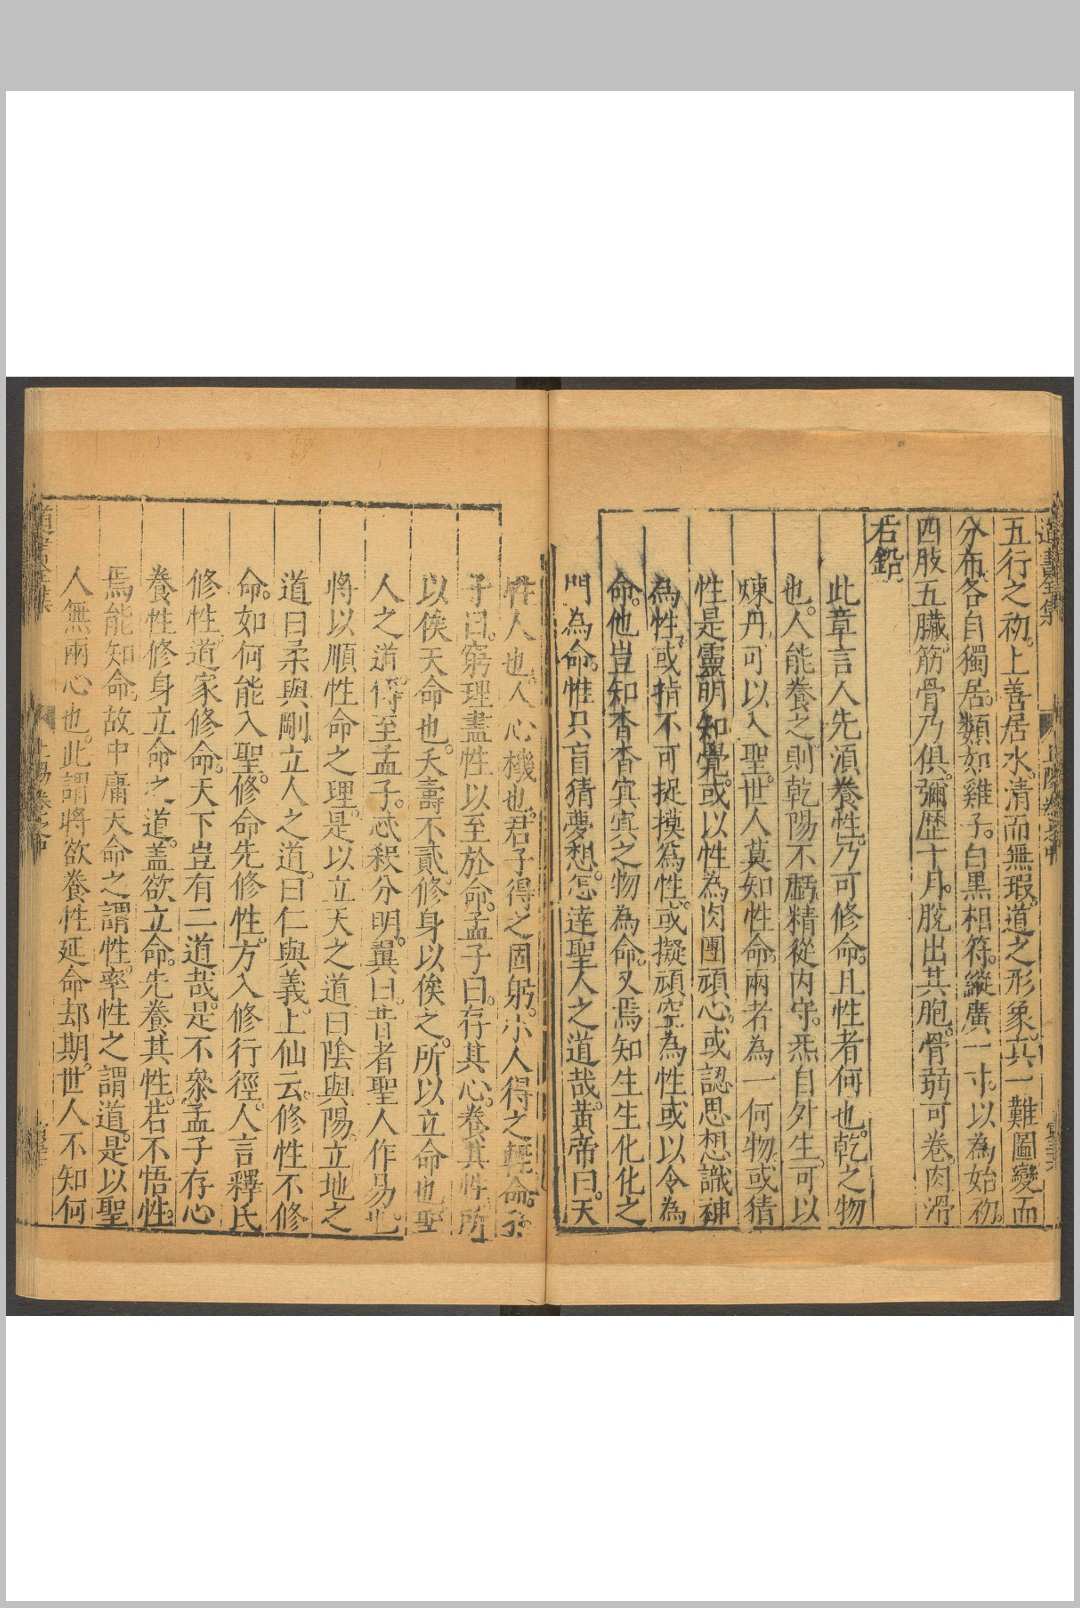 五行之初。上善居水。清而無瑕。道之形象。其一難圖。變而
分布。各自獨居。類如雞子。白黑相符。縱廣一寸。以為始初。
四肢五臟。筋骨乃俱。彌歷十月。脫出其胞。骨弱可卷。肉滑
若鉛。
此章言人先須養性。乃可修命。且性者何也。乾之物
也。人能養之。則乾陽不虧。精從內守。炁自外生。可以
煉丹。可以入聖。世人莫知性命。兩者為一何物。或猜
性是靈明知覺。或以性為肉團頑心。或認思想識神
為性。或指不可捉摸為性。或擬頑空為性。或以令為
命。他豈知杳杳冥冥之物為命。又焉知生生化化之
門為命。惟只盲猜夢想。怎達聖人之道哉。黃帝曰。天
性人也。人心機也。君子得之固躬。小人得之輕命。孔
子曰。窮理盡性以至於命。孟子曰。存其心。養其性。所
以俟天命也。夭壽不貳。修身以俟之。所以立命也。聖
人之道。待至孟子。忒䬸分明。翼曰。昔者聖人作易也。
將以順性命之理。是以立天之道曰陰與陽。立地之
道曰柔與剛。立人之道。曰仁與義。上仙云。修性不修
命。如何能入聖。修命先修性。方入修行徑。人言釋氏
修性。道家修命。天下豈有二道哉。是不參孟子存心
養性修身立命之道。蓋欲立命。先養其性。若不悟性。
焉能知命。故中庸天命之謂性。率性之謂道。是以聖
人無兩心也。此謂將欲養性。延命却期。世人不知何